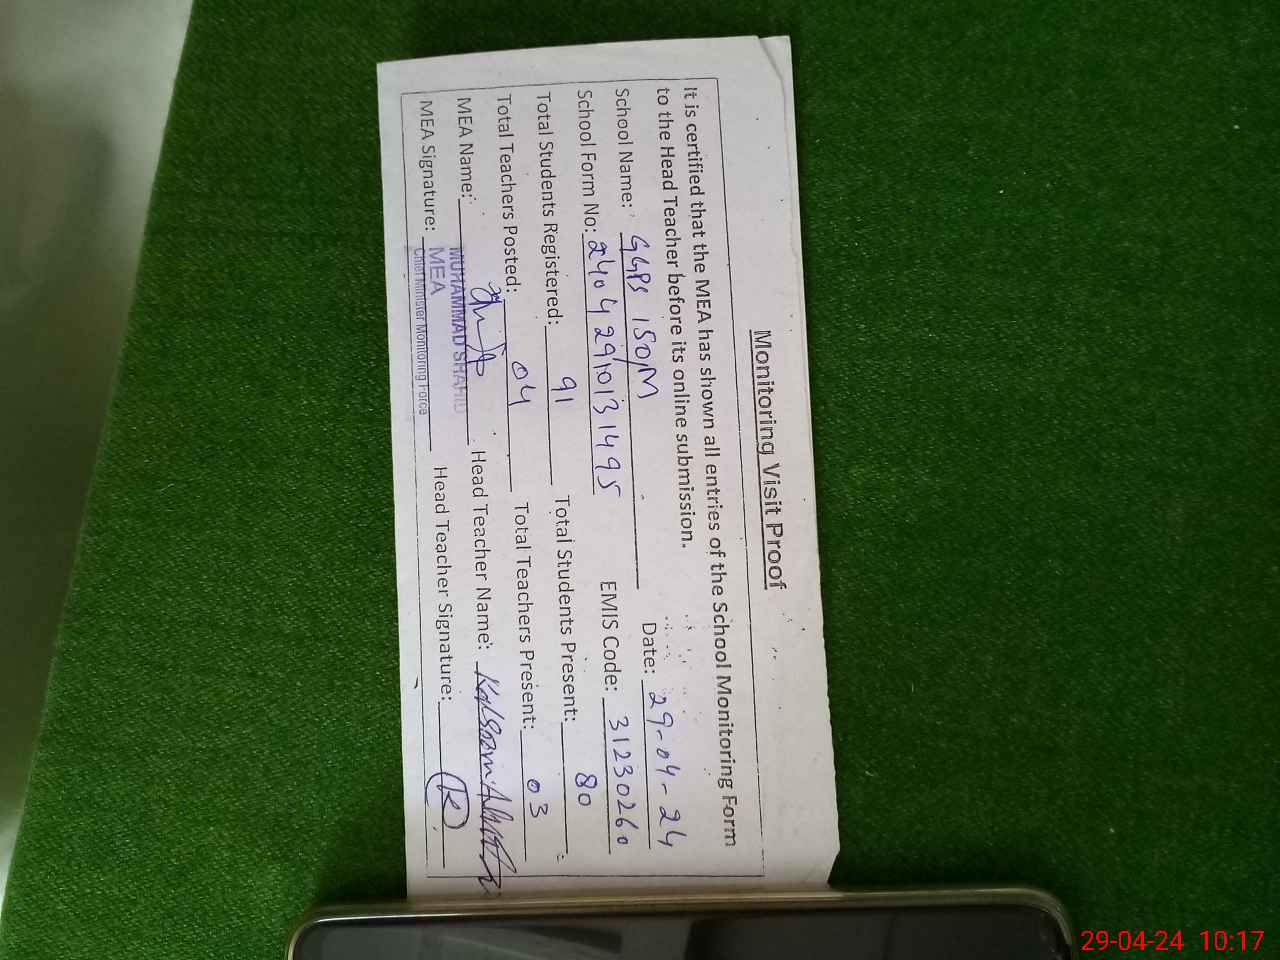 Monitoring Visit Proof
It is certified that the MEA has shown all entries of the School Monitoring Form
to the Head Teacher before its online submission.
School Name: GGPS 150/M Date: 29-04-24
School Form No: 2404291013 1495 EMIS Code: 31230260
Total Students Registered: 91 Total Students Present: 80
Total Teachers Posted: 04 Total Teachers Present: 03
MEA Name: MUHAMMAD SHAHID Head Teacher Name: Kalsoom
MEA Signature: MEA Head Teacher Signature: K
Chief Minister Monitoring Force
29-04-24 10:17